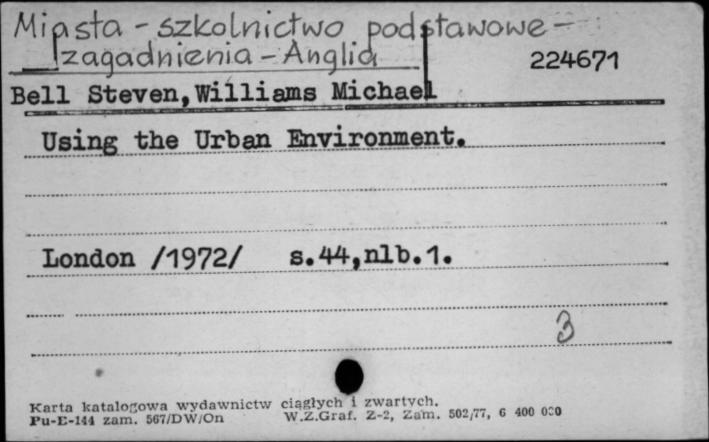 Miasta - szkolnictwo podstawowe -
zagadnienia - Anglia
224671
Bell Steven,Williams Michael
Using the Urban Environment.
London /1972/ s.44,nlb.1.
3
Karta katalogowa wydawnictw ciągłych i zwartych.
Pu-E-144 zam. 567/DW/On W.Z.Graf. Z-2, Zam. 502/77, 6 400 000